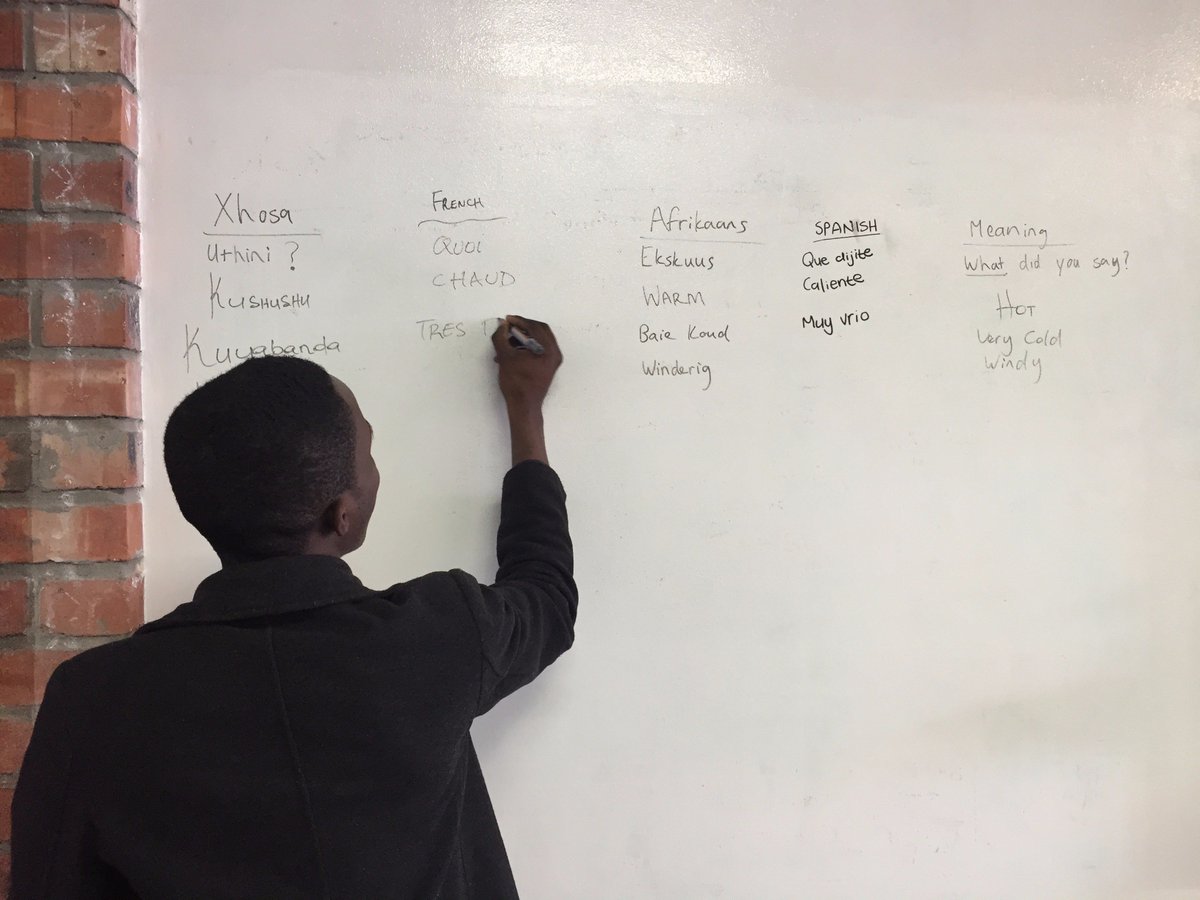 Xhosa
Uthini ?
KUSHUSHU
Kuyabanda
FRENCH
QUOI
CHAUD
TRES
Afrikaans
Ekskuus
WARM
Baie Koud
Winderig
SPANISH
Que dijite
Caliente
Muy vrio
Meaning
What did you say?
HOT
Very Cold
Windy